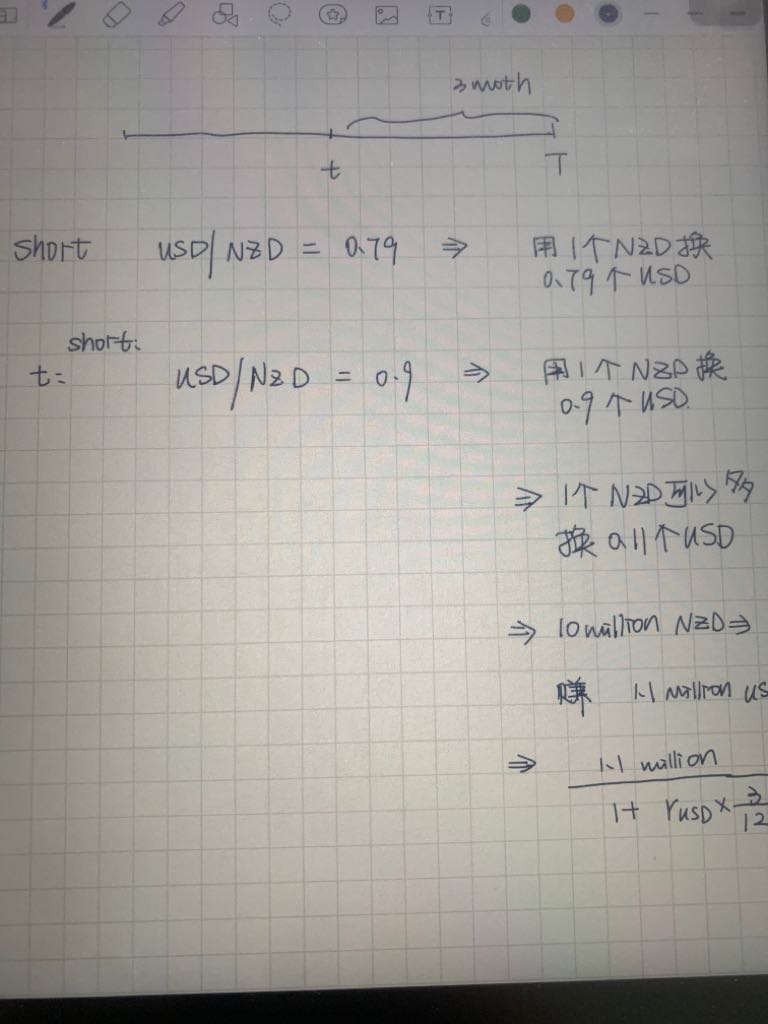 3 moth
t T
short USD/NZD = 0.79 ⇒ 用1个NZD换
0.79个USD
short:
t: USD/NZD = 0.9 ⇒ 用1个NZD换
0.9个USD.
⇒ 1个NZD可以多
换0.11个USD
⇒ 10 million NZD ⇒
赚 1.1 million us
⇒ 1.1 million
1+ rUSD × 3
12